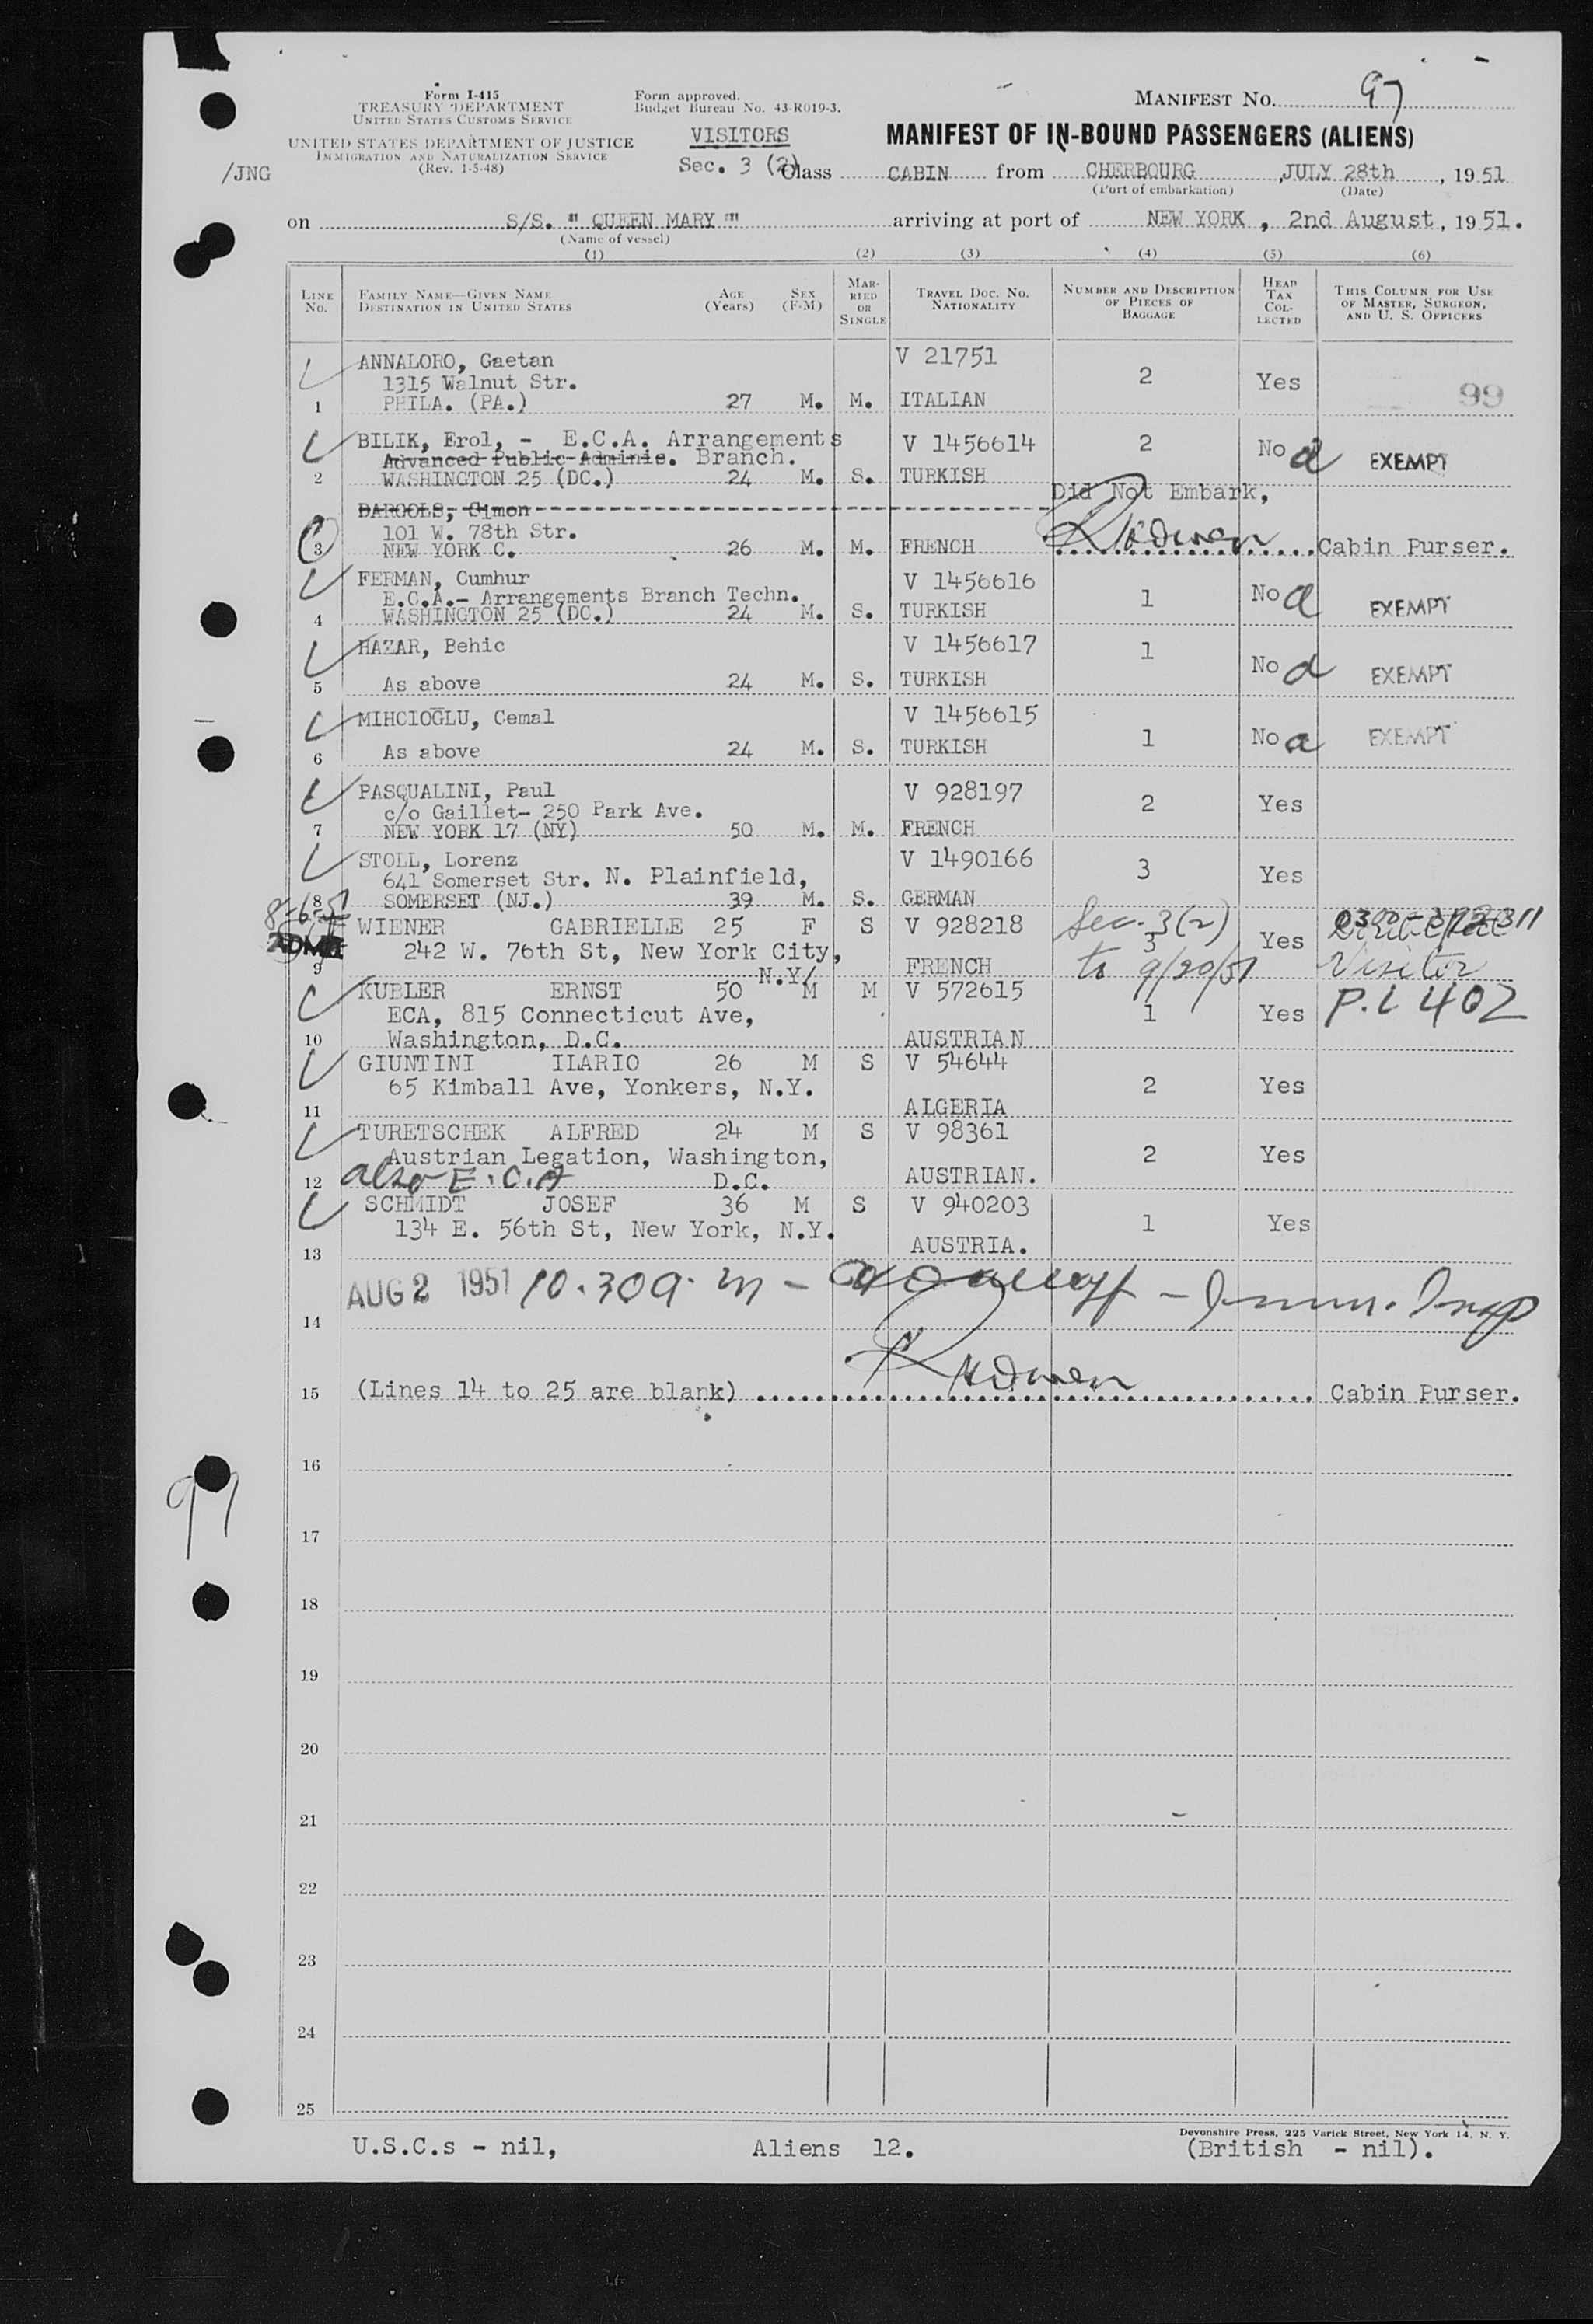 Form I-415
TREASURY DEPARTMENT
UNITED STATES CUSTOMS SERVICE
UNITED STATES DEPARTMENT OF JUSTICE
IMMIGRATION AND NATURALIZATION SERVICE
(Rev. 1-5-48)
/JNG
Form approved.
Budget Bureau No. 43-R019-3.
VISITORS
Sec. 3 (2)
MANIFEST NO. 97
MANIFEST OF IN-BOUND PASSENGERS (ALIENS)
Class CABIN from CHERBOURG ,JULY 28th , 1951
(Port of embarkation) (Date)
on S/S. " QUEEN MARY " arriving at port of NEW YORK , 2nd August , 1951.
(Name of vessel)
(1) (2) (3) (4) (5) (6)
LINE NO. FAMILY NAME—GIVEN NAME DESTINATION IN UNITED STATES AGE (YEARS) SEX (F-M) MARRIED OR SINGLE TRAVEL DOC. NO. NATIONALITY NUMBER AND DESCRIPTION OF PIECES OF BAGGAGE HEAD TAX COLLECTED THIS COLUMN FOR USE OF MASTER, SURGEON, AND U. S. OFFICERS
ANNALORO, Gaetan V 21751
1315 Walnut Str. 2 Yes 99
1 PHILA. (PA.) 27 M. M. ITALIAN
BILIK, Erol, - E.C.A. Arrangements V 1456614 2 No
Advanced Public Adminis. Branch. EXEMPT
2 WASHINGTON 25 (DC.) 24 M. S. TURKISH
DARGOLS, Simon Did Not Embark,
101 W. 78th Str.
3 NEW YORK C. 26 M. M. FRENCH Cabin Purser.
FERMAN, Cumhur V 1456616
E.C.A.- Arrangements Branch Techn. 1 No EXEMPT
4 WASHINGTON 25 (DC.) 24 M. S. TURKISH
HAZAR, Behic V 1456617 1
No EXEMPT
5 As above 24 M. S. TURKISH
MIHCIOGLU, Cemal V 1456615
1 No EXEMPT
6 As above 24 M. S. TURKISH
PASQUALINI, Paul V 928197
c/o Gaillet- 250 Park Ave. 2 Yes
7 NEW YORK 17 (NY) 50 M. M. FRENCH
STOLL, Lorenz V 1490166
641 Somerset Str. N. Plainfield, 3 Yes
8 SOMERSET (NJ.) 39 M. S. GERMAN
8-6-51
WIENER GABRIELLE 25 F S V 928218 Sec. 3(2)
ADMIT 242 W. 76th St, New York City, 3 Yes
9 N.Y/ FRENCH to 9/20/51 Visitor
KUBLER ERNST 50 M M V 572615
ECA, 815 Connecticut Ave, 1 Yes P.L 402
10 Washington, D.C. AUSTRIAN
GIUNTINI ILARIO 26 M S V 54644
65 Kimball Ave, Yonkers, N.Y. 2 Yes
11 ALGERIA
TURETSCHEK ALFRED 24 M S V 98361
Austrian Legation, Washington, 2 Yes
12 also E.C.A D.C. AUSTRIAN.
SCHMIDT JOSEF 36 M S V 940203
134 E. 56th St, New York, N.Y. 1 Yes
13 AUSTRIA.
AUG 2 1951 10.30 a.m -
14
15 (Lines 14 to 25 are blank) Cabin Purser.
16
97
17
18
19
20
21
22
23
24
25
Devonshire Press, 225 Varick Street, New York 14, N. Y.
U.S.C.s - nil, Aliens 12. (British - nil).